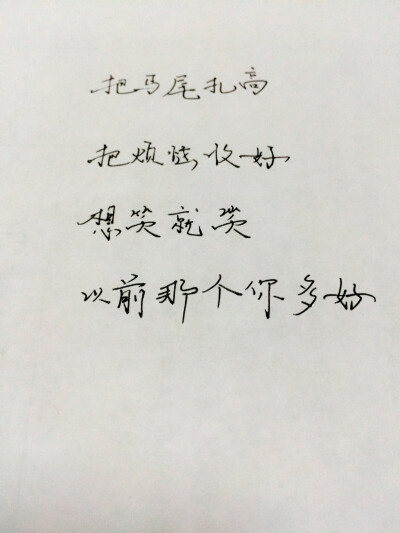 把马尾扎高
把烦恼收好
想笑就笑
以前那个你多好